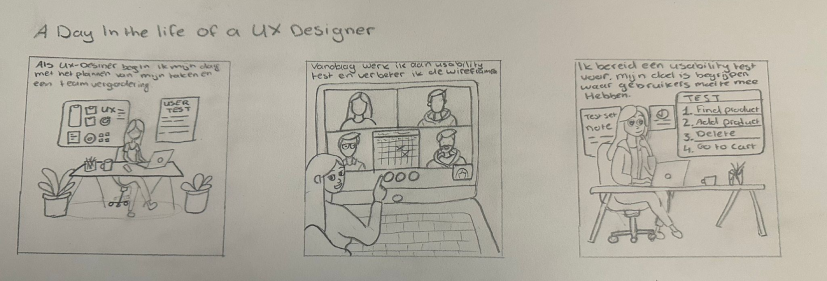 A Day In the life of a UX Designer
Als UX-Desiner begin ik mijn dag
met het plannen van mijn taken en
een teamvergadering
UX
USER
TEST
Vandaag werk ik aan usability
test en verbeter ik de wireframe
Ik bereid een usability test
voor. mijn doel is begrijpen
waar gebruikers moeite mee
Hebben.
note
TEST
1. Find product
2. Add product
3. Delete
4. Go to cart